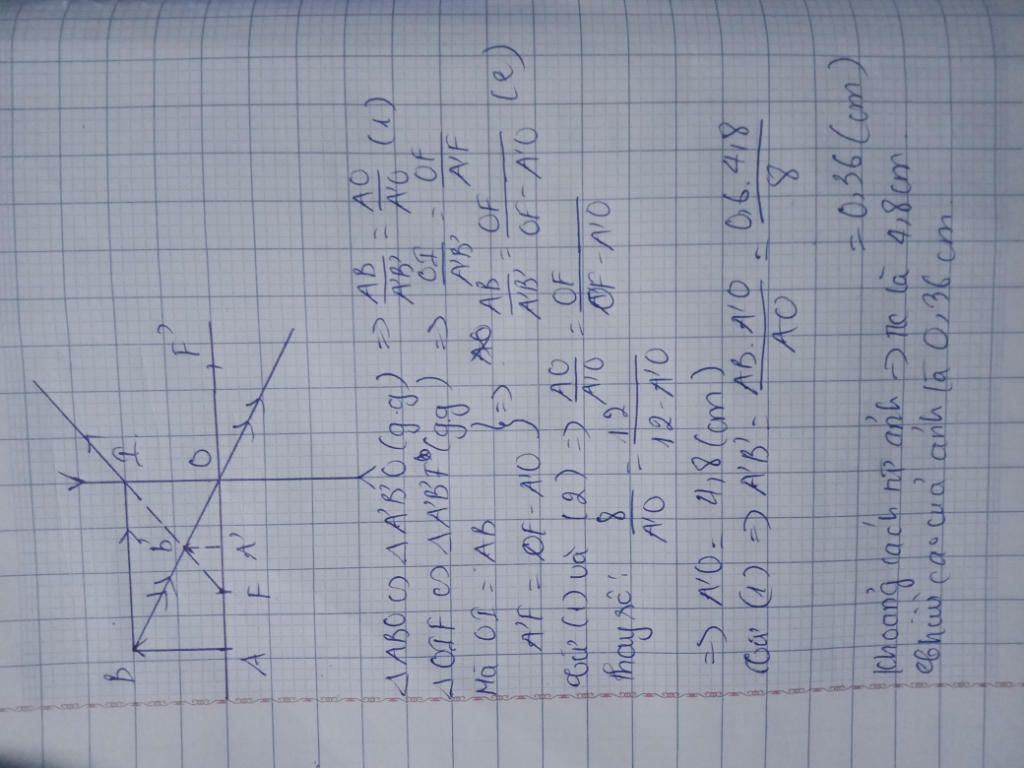 B
I
F'
B'
O
F
A'
A
△ABO ∽ △A'B'O (g.g) => AB/A'B' = AO/A'O (1)
△OIF ∽ △A'B'F (gg) => OI/A'B' = OF/A'F
Mà OI = AB
A'F = OF - A'O } => AB/A'B' = OF/OF - A'O (2)
Từ (1) và (2) => AO/A'O = OF/OF - A'O
Thay số: 8/A'O = 12/12 - A'O
=> A'O = 4,8 (cm)
Từ (1) => A'B' = AB. A'O/AO = 0,6. 4,8/8
= 0,36 (cm)
Khoảng cách từ ảnh -> TK là 4,8cm
chiều cao của ảnh là 0,36 cm